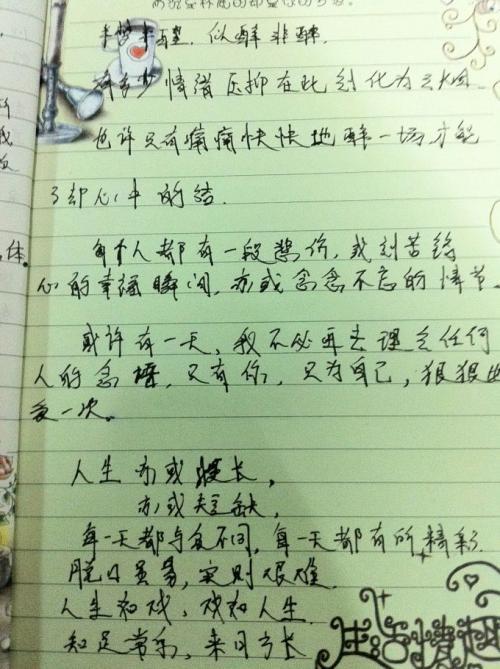 半梦半醒，似醉非醉，
有多少情绪压抑在此刻化为云烟
也许只有痛痛快快地醉一场才能
了却心中的结.
每个人都有一段悲伤,或刻苦铭
心的幸福瞬间,亦或念念不忘的情节.
或许有一天,我不必再去理会任何
人的念,只有你,只为自己,狠狠
一次。
人生亦或漫长,
亦或短缺,
每一天都与众不同,每一天都有所精彩.
脱口容易,实则艰难.
人生如戏,戏如人生.
知足常乐,来日方长
生活情趣
体.